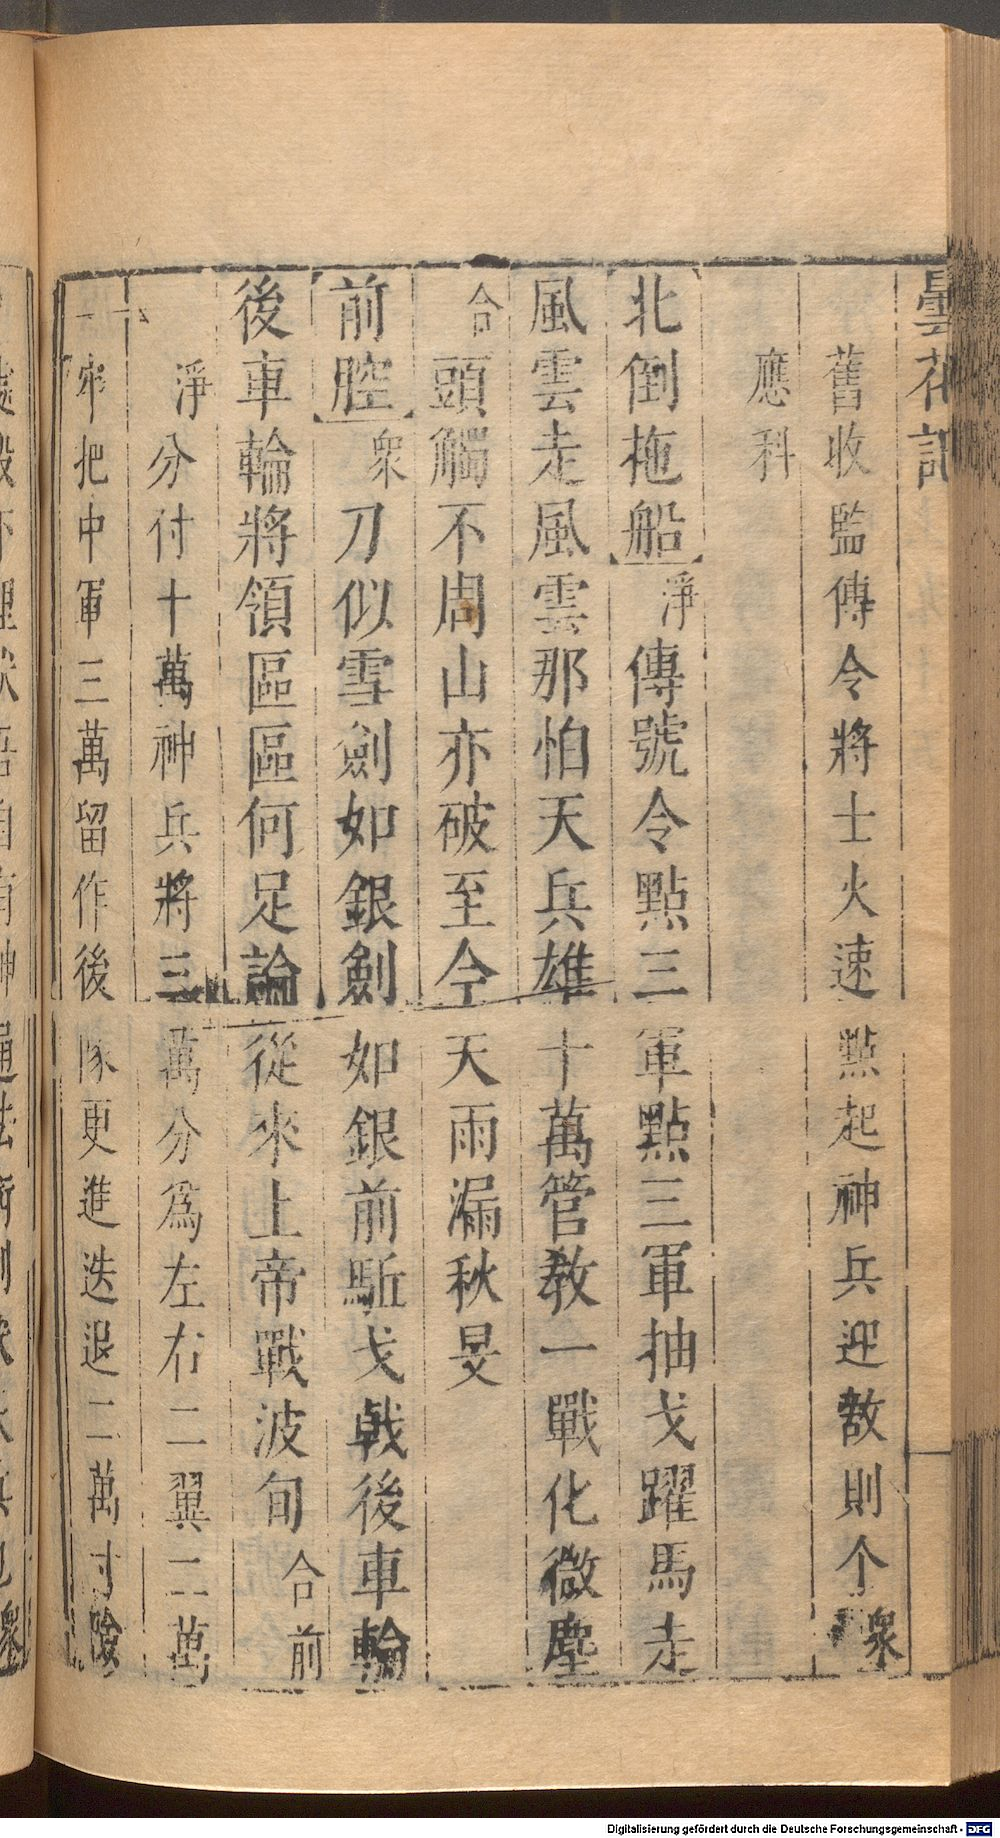 曇花記
舊收監傳令將士火速點起神兵迎敵則个衆
應科
北倒拖船淨傳號令點三軍點三軍抽戈躍馬走
風雲走風雲那怕天兵雄十萬管教一戰化微塵
合頭觸不周山亦破至今天雨漏秋旻
前腔衆刀似雪劍如銀劍如銀前駈戈戟後車輪
後車輪將領區區何足論從來上帝戰波旬合前
淨分付十萬神兵將三萬分爲左右二翼二萬
牢把中軍三萬留作後隊更進迭退二萬寸險
Digitalisierung gefördert durch die Deutsche Forschungsgemeinschaft - DFG